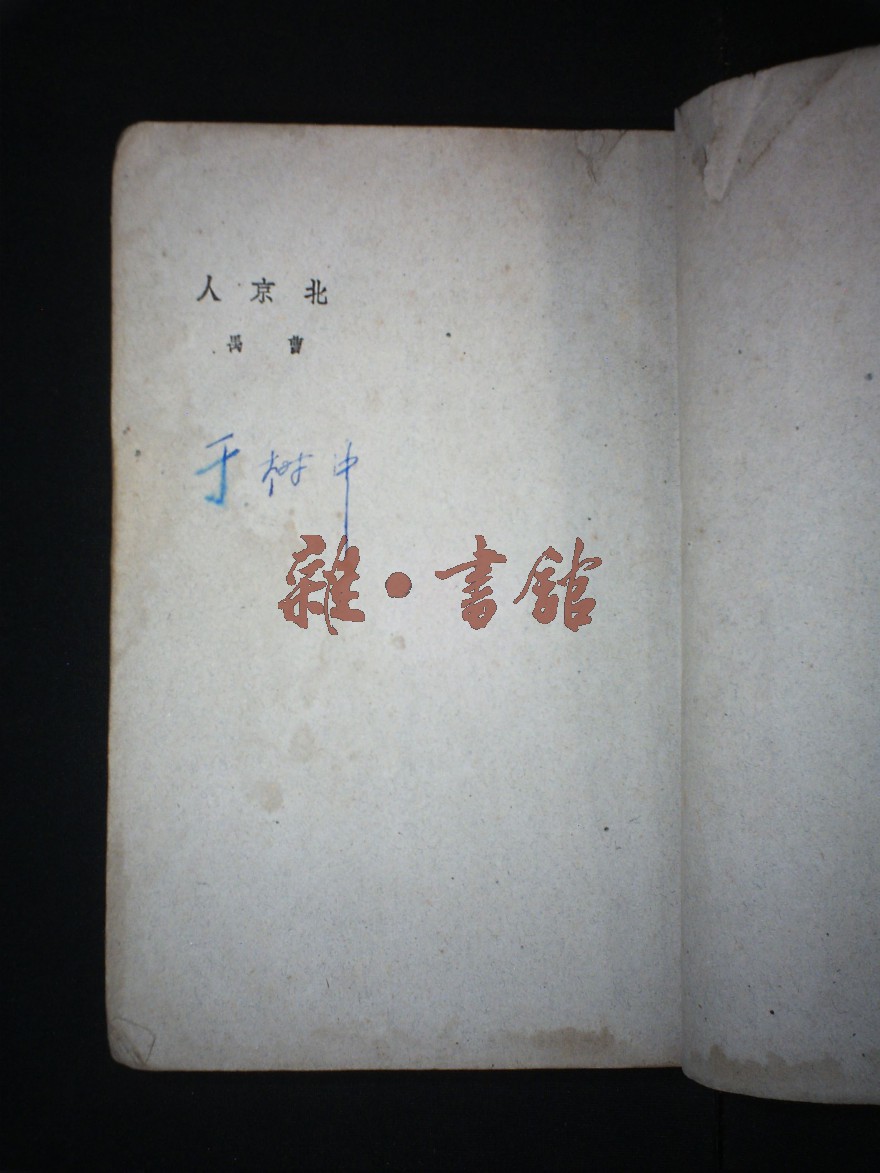 北京人
曹禺
于树中
雜·書館